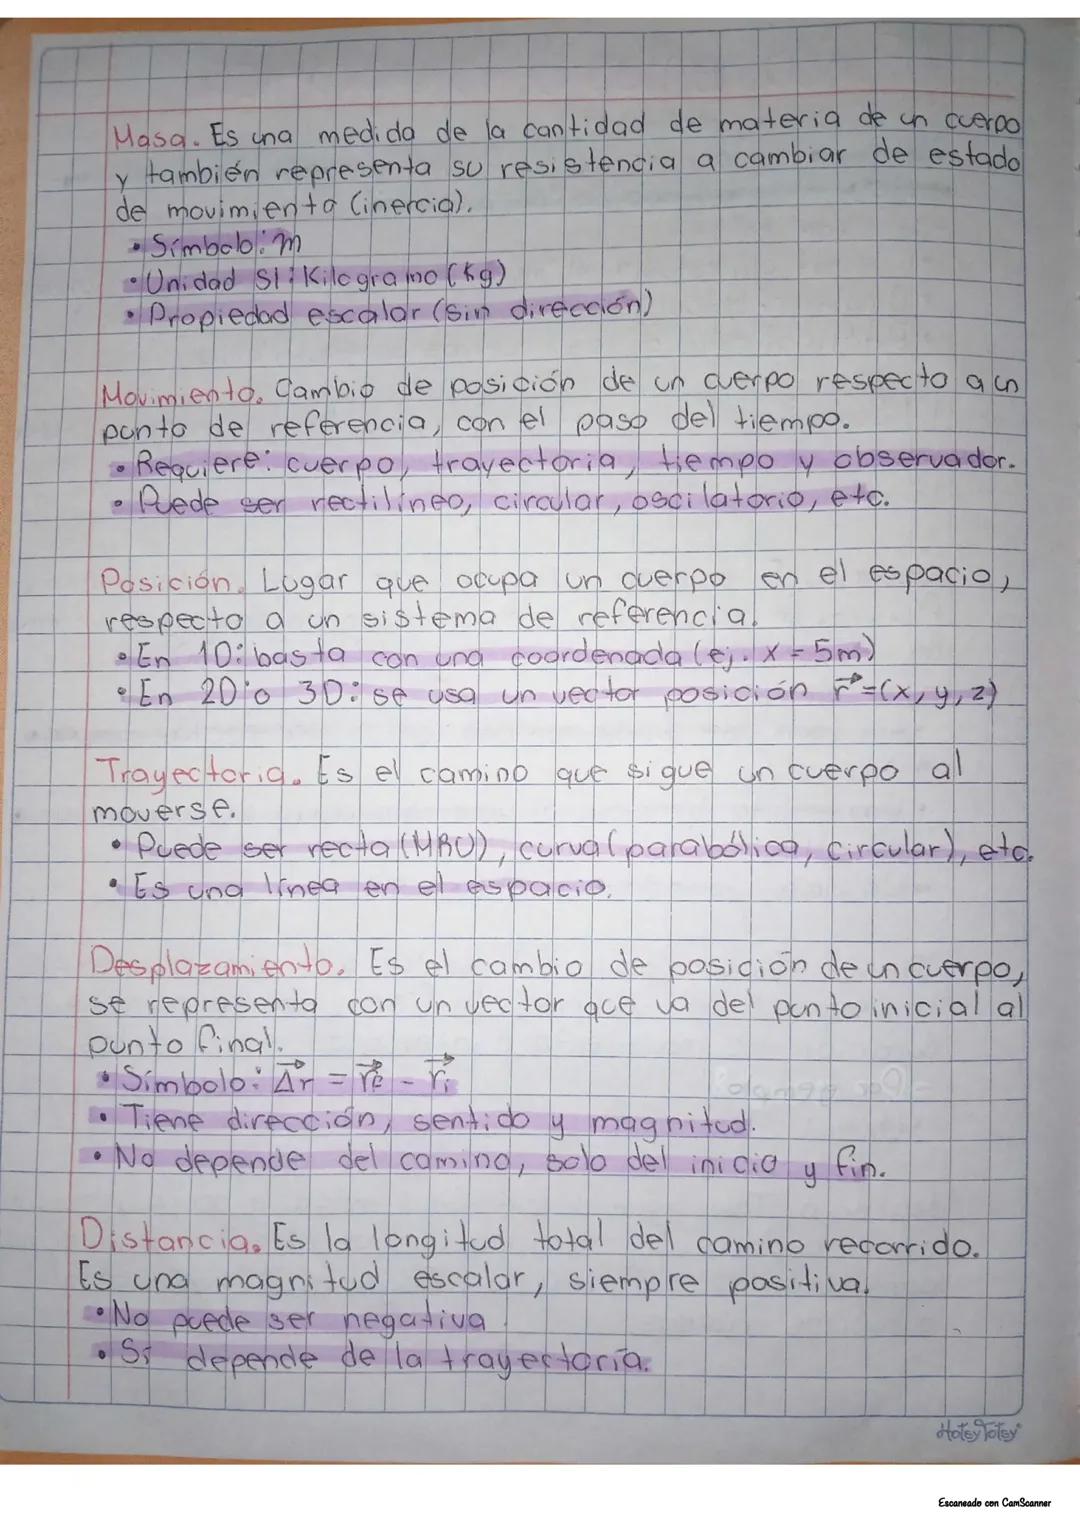 Masa. Es una medida de la cantidad de materia de un cuerpo
y también representa su resistencia a cambiar de estado
de movimiento (inercia).
• Símbolo: m
• Unidad SI: Kilogramo (kg)
• Propiedad escalar (sin dirección)
Movimiento. Cambio de posición de un cuerpo respecto a un
punto de referencia, con el paso del tiempo.
• Requiere: cuerpo, trayectoria, tiempo y observador.
• Puede ser rectilíneo, circular, oscilatorio, etc.
Posición. Lugar que ocupa un cuerpo en el espacio,
respecto a un sistema de referencia.
• En 1D: basta con una coordenada (ej. x = 5m)
• En 2D o 3D: se usa un vector posición r⃗ = (x, y, z)
Trayectoria. Es el camino que sigue un cuerpo al
moverse.
• Puede ser recta (MRU), curva (parabólica, circular), etc.
• Es una línea en el espacio.
Desplazamiento. Es el cambio de posición de un cuerpo,
se representa con un vector que va del punto inicial al
punto final.
• Símbolo: Δr⃗ = r⃗f - r⃗i
• Tiene dirección, sentido y magnitud.
• No depende del camino, solo del inicio y fin.
Distancia. Es la longitud total del camino recorrido.
Es una magnitud escalar, siempre positiva.
• No puede ser negativa
• Sí depende de la trayectoria.
HotsyTotsy
Escaneado con CamScanner